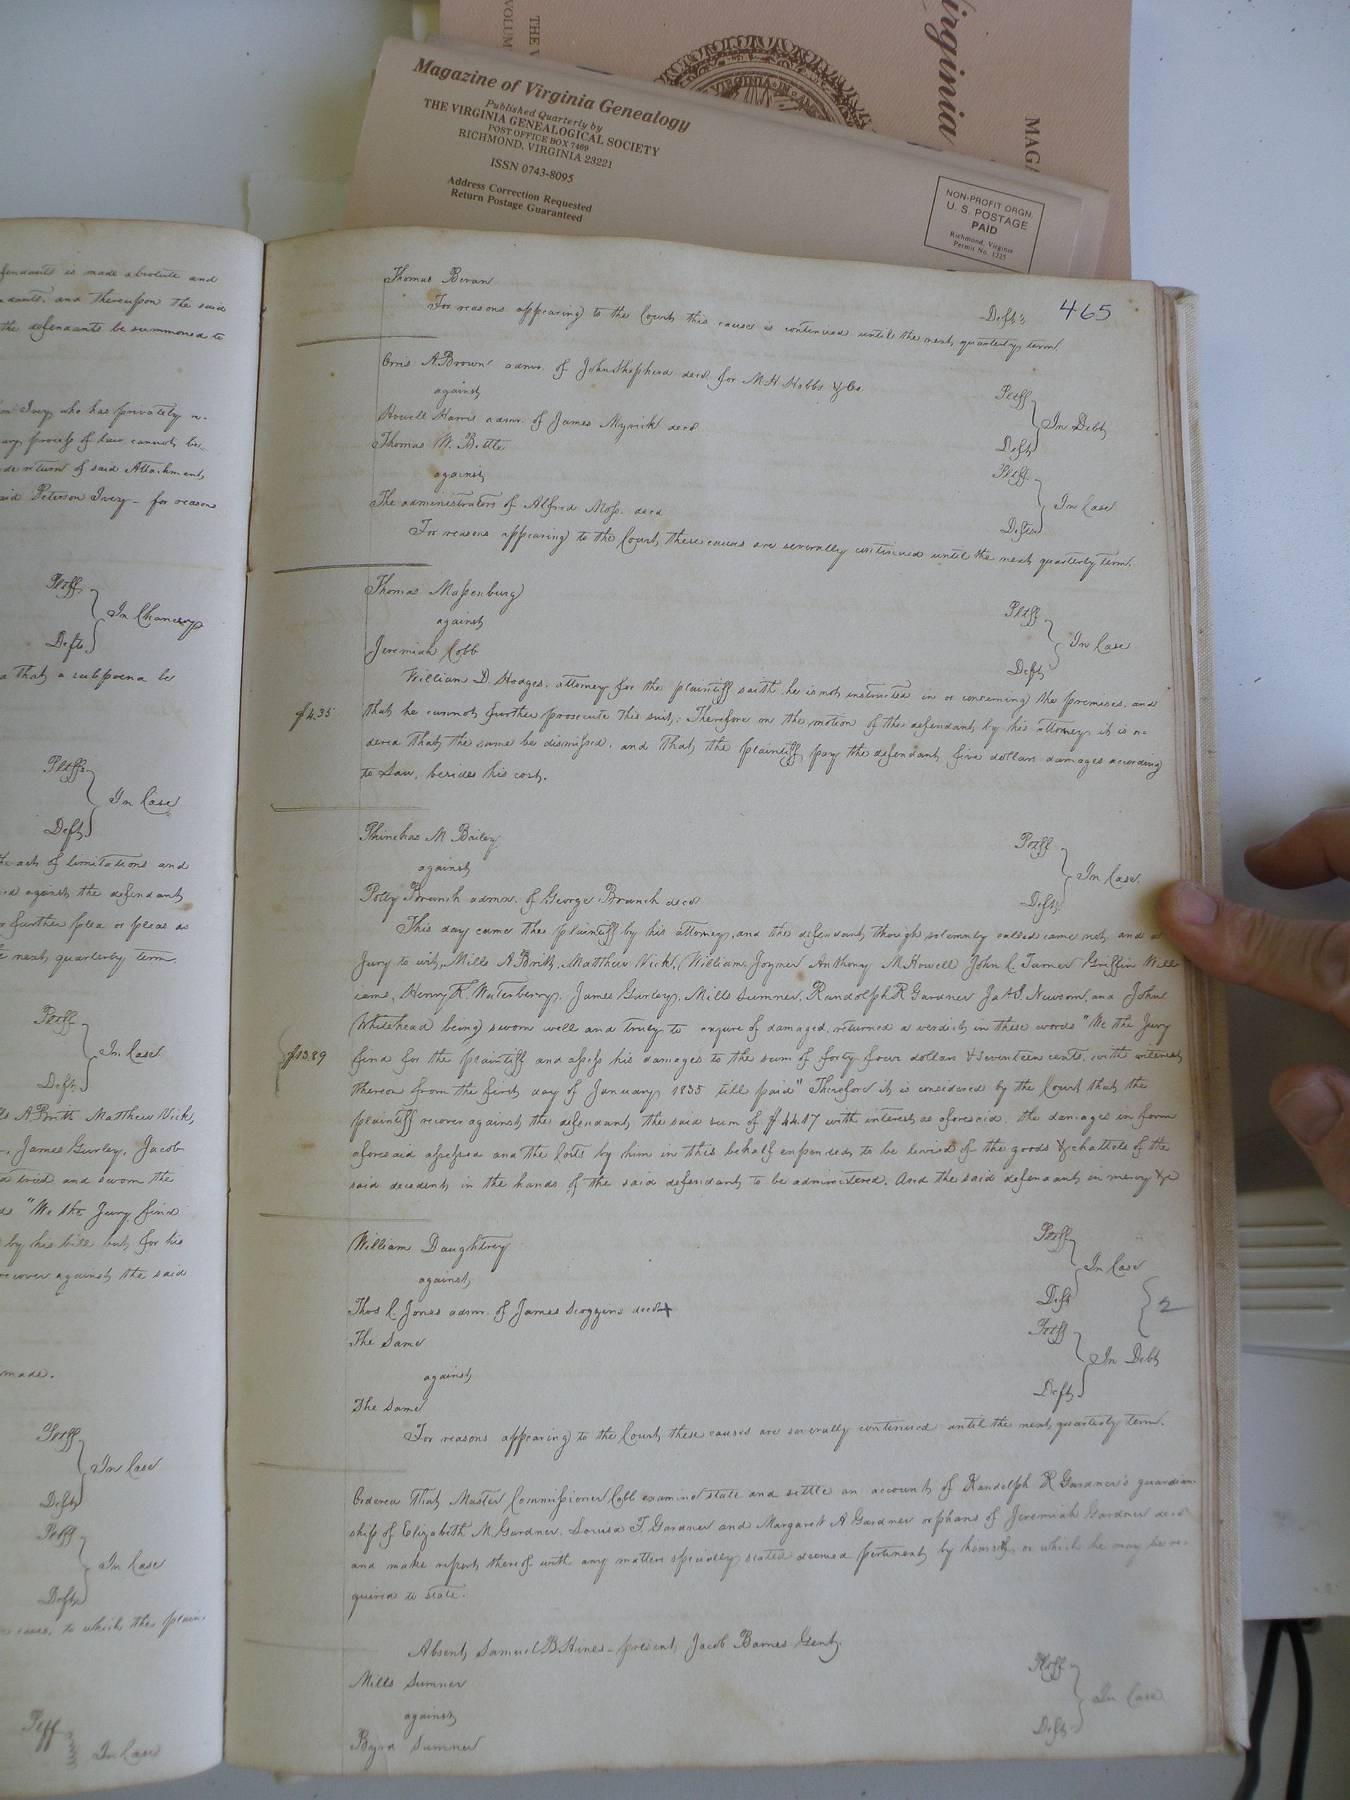 Magazine of Virginia Genealogy
Published Quarterly by
THE VIRGINIA GENEALOGICAL SOCIETY
POST OFFICE BOX 7469
RICHMOND, VIRGINIA 23221
ISSN 0743-8095
Address Correction Requested
Return Postage Guaranteed
NON-PROFIT ORGN.
U. S. POSTAGE
PAID
Richmond, Virginia
Permit No. 1225
THE V
VOLUM
Virginia
MAG
VIRGINIA
fendants is made absolute and
dants, and thereupon the said
the defendants be summoned to
Ivey who has privately re-
process of law cannot be
de return of said Attachment,
aid Peterson Ivey - for reasons
Pltff
In Chancery
Deft.
that a subpoena be
Pltffs
In Case
Deft
act of limitations and
against the defendant
further plea or pleas as
next quarterly term.
Pltff
In Case
Deft.
A Britt Matthew Vick,
James Gurley, Jacob
tried and sworn the
"We the Jury find
by his bill but for his
recover against the said
made.
Pltff
In Case
Deft
Pltff
In Case
Deft
cause, to which the plain-
Pltff
In Case
465
Thomas Bevan
Defts
For reasons appearing to the Court this cause is continued until the next quarterly term.
Orris A Brown admr. of John Shepherd decd. for M H Hobbs & Co. Pltff
against
In Debt
Howell Harris admr. of James Myrick decd Deft
Thomas W. Bettle Pltff
against
In Case
The administrators of Alfred Moss. decd Defts
For reasons appearing to the Court, these causes are severally continued until the next quarterly term.
Thomas Massenburg Pltff
against
In Case
Jeremiah Cobb Deft
William D. Hodges, attorney for the plaintiff saith he is not instructed in or concerning the premises, and
$4.35 that he cannot further prosecute this suit: Therefore on the motion of the defendant by his attorney it is or-
dered that the same be dismissed, and that the plaintiff pay the defendant, five dollars damages according
to Law, besides his cost.
Phinehas M Bailey Pltff
against
In Case
Polly Branch admrx. of George Branch decd Deft
This day came the plaintiff by his attorney, and the defendant though solemnly called came not, and a
Jury to wit, Mills A Britt, Matthew Vick, William Joyner Anthony M Howell John C. Turner Griffin Will-
iams, Henry K. Waterberry, James Gurley, Mills Sumner, Randolph R Gardner Ja. A S. Newsom, and John
Whitehead being sworn well and truly to enquire of damages, returned a verdict in these words "We the Jury
$13.89 find for the plaintiff and assess his damages to the sum of forty four dollars & seventeen cents, with interest
thereon from the first day of January 1835 till paid" Therefore it is considered by the Court that the
plaintiff recover against the defendant the said sum of $44.17 with interest as aforesaid, the damages in form
aforesaid assessed and the Costs by him in this behalf expended, to be levied of the goods & chattels of the
said decedent, in the hands of the said defendant to be administered. And the said defendant in mercy &c
William Daughtrey Pltff
against
In Case
Thos. C. Jones admr. of James Scoggins decd + Deft
2
The Same Pltff
against
In Debt
The Same Deft
For reasons appearing to the Court these causes are severally continued until the next quarterly term.
Ordered that Master Commissioner Cobb examine state and settle an account of Randolph R Gardner's guardian-
ship of Elizabeth M Gardner, Louisa F. Gardner and Margaret A Gardner orphans of Jeremiah Gardner decd
and make report thereof with any matters specially stated deemed pertinent by himself, or which he may be re-
quired to state.
Absent, Samuel B Hines - present, Jacob Barnes Gent.
Mills Sumner Pltff
against
In Case
Byrd Sumner Deft